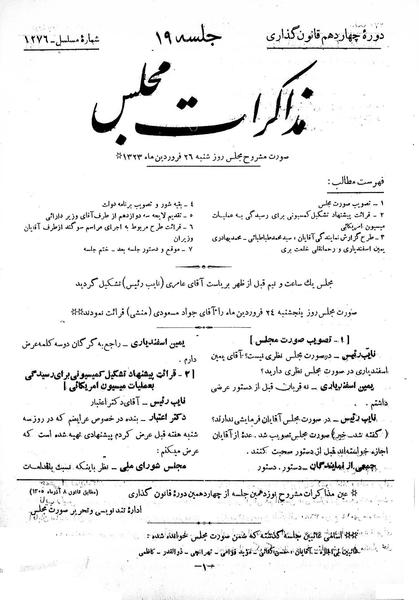 دورهٔ چهاردهم قانون گذاری
جلسه ۱۹
شمارهٔ مسلسل - ۱۲۷۶
مذاکرات مجلس
صورت مشروح مجلس روز شنبه ۲۶ فروردین ماه ۱۳۲۳
فهرست مطالب:
۱ - تصویب صورت مجلس
۲ - قرائت پیشنهاد تشکیل کمیسیونی برای رسیدگی به عملیات
میسیون امریکائی
۳ - طرح گزارش نمایندگی آقایان: سید محمد طباطبائی - محمد بهادری
یمین اسفندیاری و رحمانقلی خلعت بری
۴ - بقیه شور و تصویب برنامه دولت
۵ - تقدیم لایحه سه دوازدهم از طرف آقای وزیر دارائی
۶ - قرائت طرح مربوط به اجرای مراسم سوگند از طرف آقایان
وزیران
۷ - موقع و دستور جلسه بعد - ختم جلسه
مجلس یك ساعت و نیم قبل از ظهر بریاست آقای عامری (نایب رئیس) تشکیل گردید
صورت مجلس روز پنجشنبه ۲۴ فروردین ماه را آقای جواد مسعودی (منشی) قرائت نمودند
[ ۱ - تصویب صورت مجلس ]
نایب رئیس - در صورت مجلس نظری نیست؟ آقای یمین
اسفندیاری در صورت مجلس نظری دارید؟
یمین اسفندیاری - نه قربان قبل از دستور عرضی
داشتم.
نایب رئیس - در صورت مجلس آقایان فرمایشی ندارند؟
(گفته شد - خیر) صورت مجلس تصویب شد. عدهٔ از آقایان
اجازه خواسته‌اند قبل از دستور صحبت کنند.
جمعی از نمایندگان - دستور. دستور
یمین اسفندیاری - راجع به گرگان دو سه کلمه عرض
دارم.
[ ۲ - قرائت پیشنهاد تشکیل کمیسیونی برای رسیدگی
بعملیات میسیون امریکائی ]
نایب رئیس - آقای دکتر اعتبار
دکتر اعتبار - بنده در خصوص عرایضم که در روز سه
شنبه هفته قبل عرض کردم پیشنهادی تهیه شده است که
عرض میکنم
مجلس شورای ملی - نظر باینکه نسبت باقدامات
عین مذاکرات مشروح نوزدهمین جلسه از چهاردهمین دورهٔ قانون گذاری
(مطابق قانون ۸ آذرماه ۱۳۰۵)
ادارهٔ تند نویسی و تحریر صورت مجلس
اسامی غائبین جلسه گذشته که ضمن صورت مجلس خوانده شده:
- ۱ -